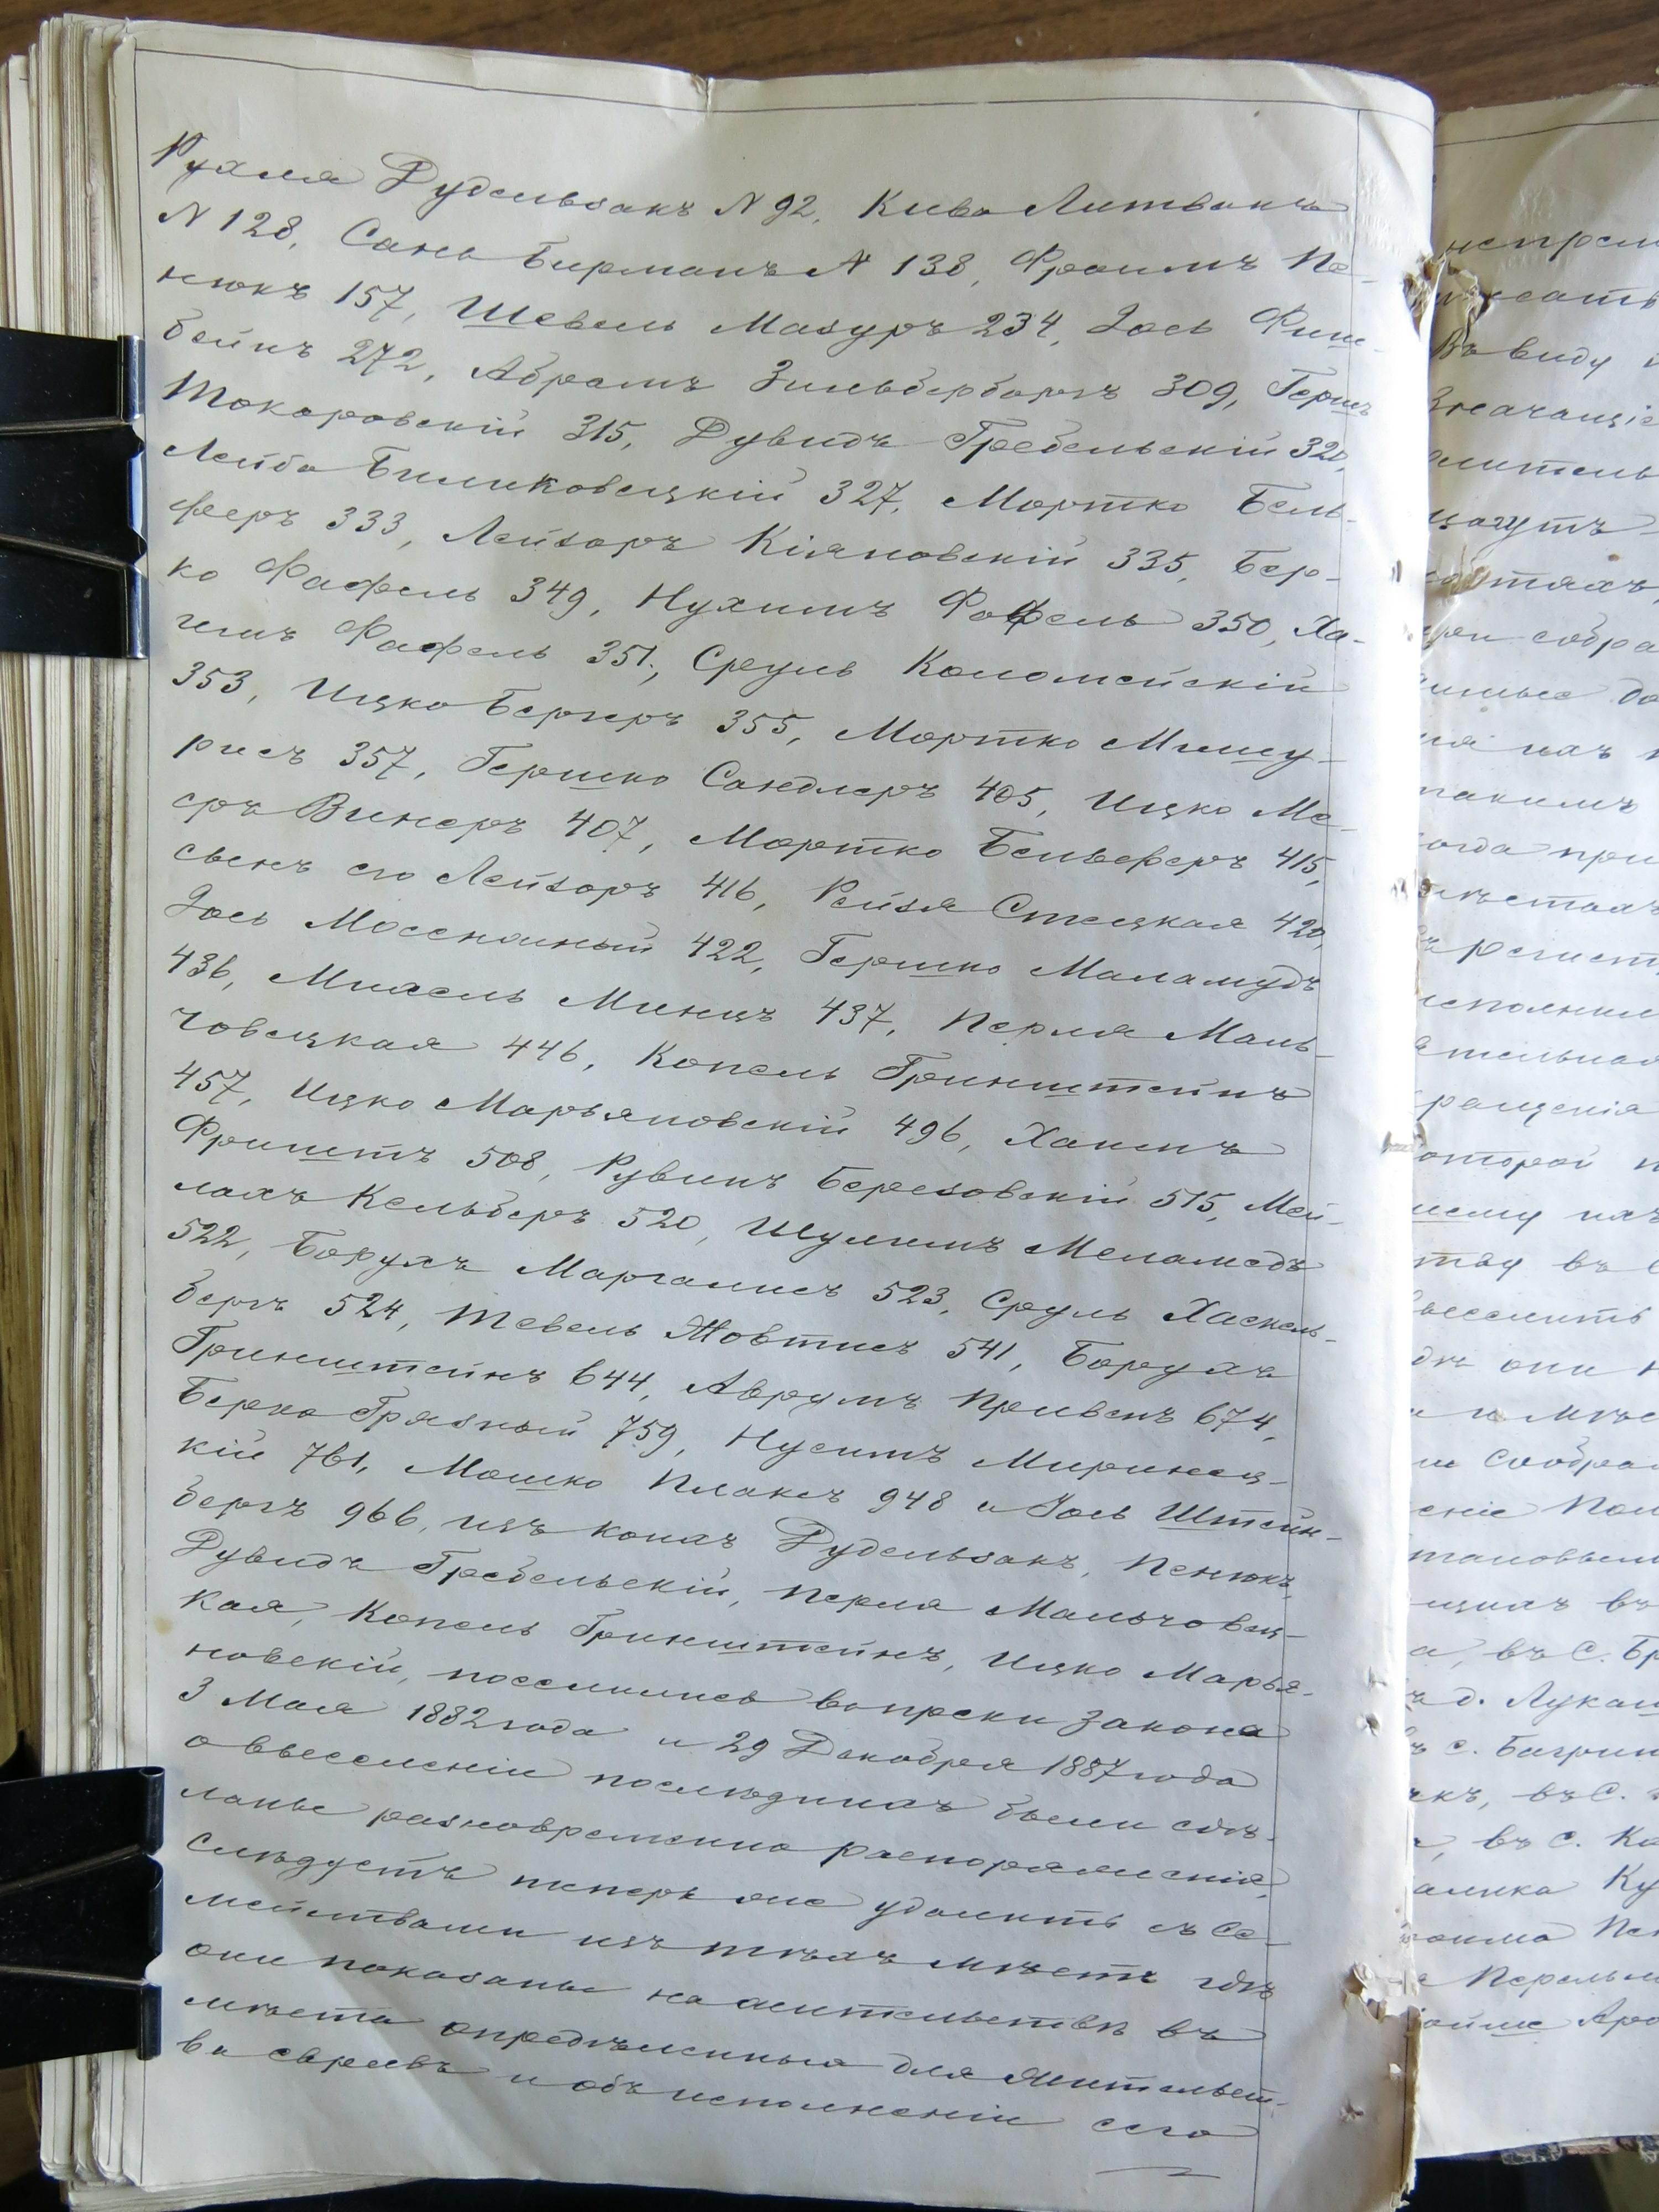 Рухля Дудельзакъ N 92, Кива Литвакъ
N 128, Сань Бирманъ N 138, Фроимъ Пе-
нюкъ 157, Шевель Мазуръ 234, Іось Фиш-
бейнъ 272, Абрамъ Зильберборгъ 309, Гершъ
Токаровскій 315, Дувидъ Гребельскій 320,
Лейба Биликовецкій 327, Мортко Бель-
феръ 333, Лейзоръ Кіяновскій 335, Бер-
ко Фафель 349, Нухимъ Фафель 350, Ха-
имъ Фафель 351, Сруль Коломейскій
353, Ицко Бергеръ 355, Мортко Мишу-
рисъ 357, Гершко Сандлеръ 405, Ицко Ме-
еръ Винеръ 407, Мортко Бельферъ 415,
сынъ его Лейзоръ 416, Рейзя Стецкая 420,
Іось Мосенжный 422, Гершко Маламудъ
436, Михель Минцъ 437, Перля Маль-
човецкая 446, Копель Гринштейнъ
457, Ицко Марьяновскій 496, Хаимъ
Фриштъ 508, Рувинъ Березовскій 515, Мей-
лахъ Кельберъ 520, Шулимъ Меламедъ
522, Борухъ Маргалисъ 523, Сруль Хаскель-
бергъ 524, Тевель Жовтисъ 541, Борухъ
Гринштейнъ 644, Аврумъ Привенъ 674,
Берко Грязный 759, Нусимъ Миринец-
кій 761, Мошко Плаксъ 948 и Іось Штейн-
бергъ 966, изъ коихъ Дудельзакъ, Пенюкъ,
Дувидъ Гребельскій, Перля Мальчовец-
кая, Копель Гринштейнъ, Ицко Марья-
новскій, поселились вопреки закона
3 Мая 1882 года и 29 Декабря 1887 года
о выселеніи послѣднихъ были сдѣ-
ланы разновременно распоряженія,
слѣдуетъ теперь же удалить съ се-
мействами изъ тѣхъ мѣстъ гдѣ
они показаны на жительствѣ въ
мѣста опредѣленныя для жительст-
ва евреевъ и объ исполненіи сего